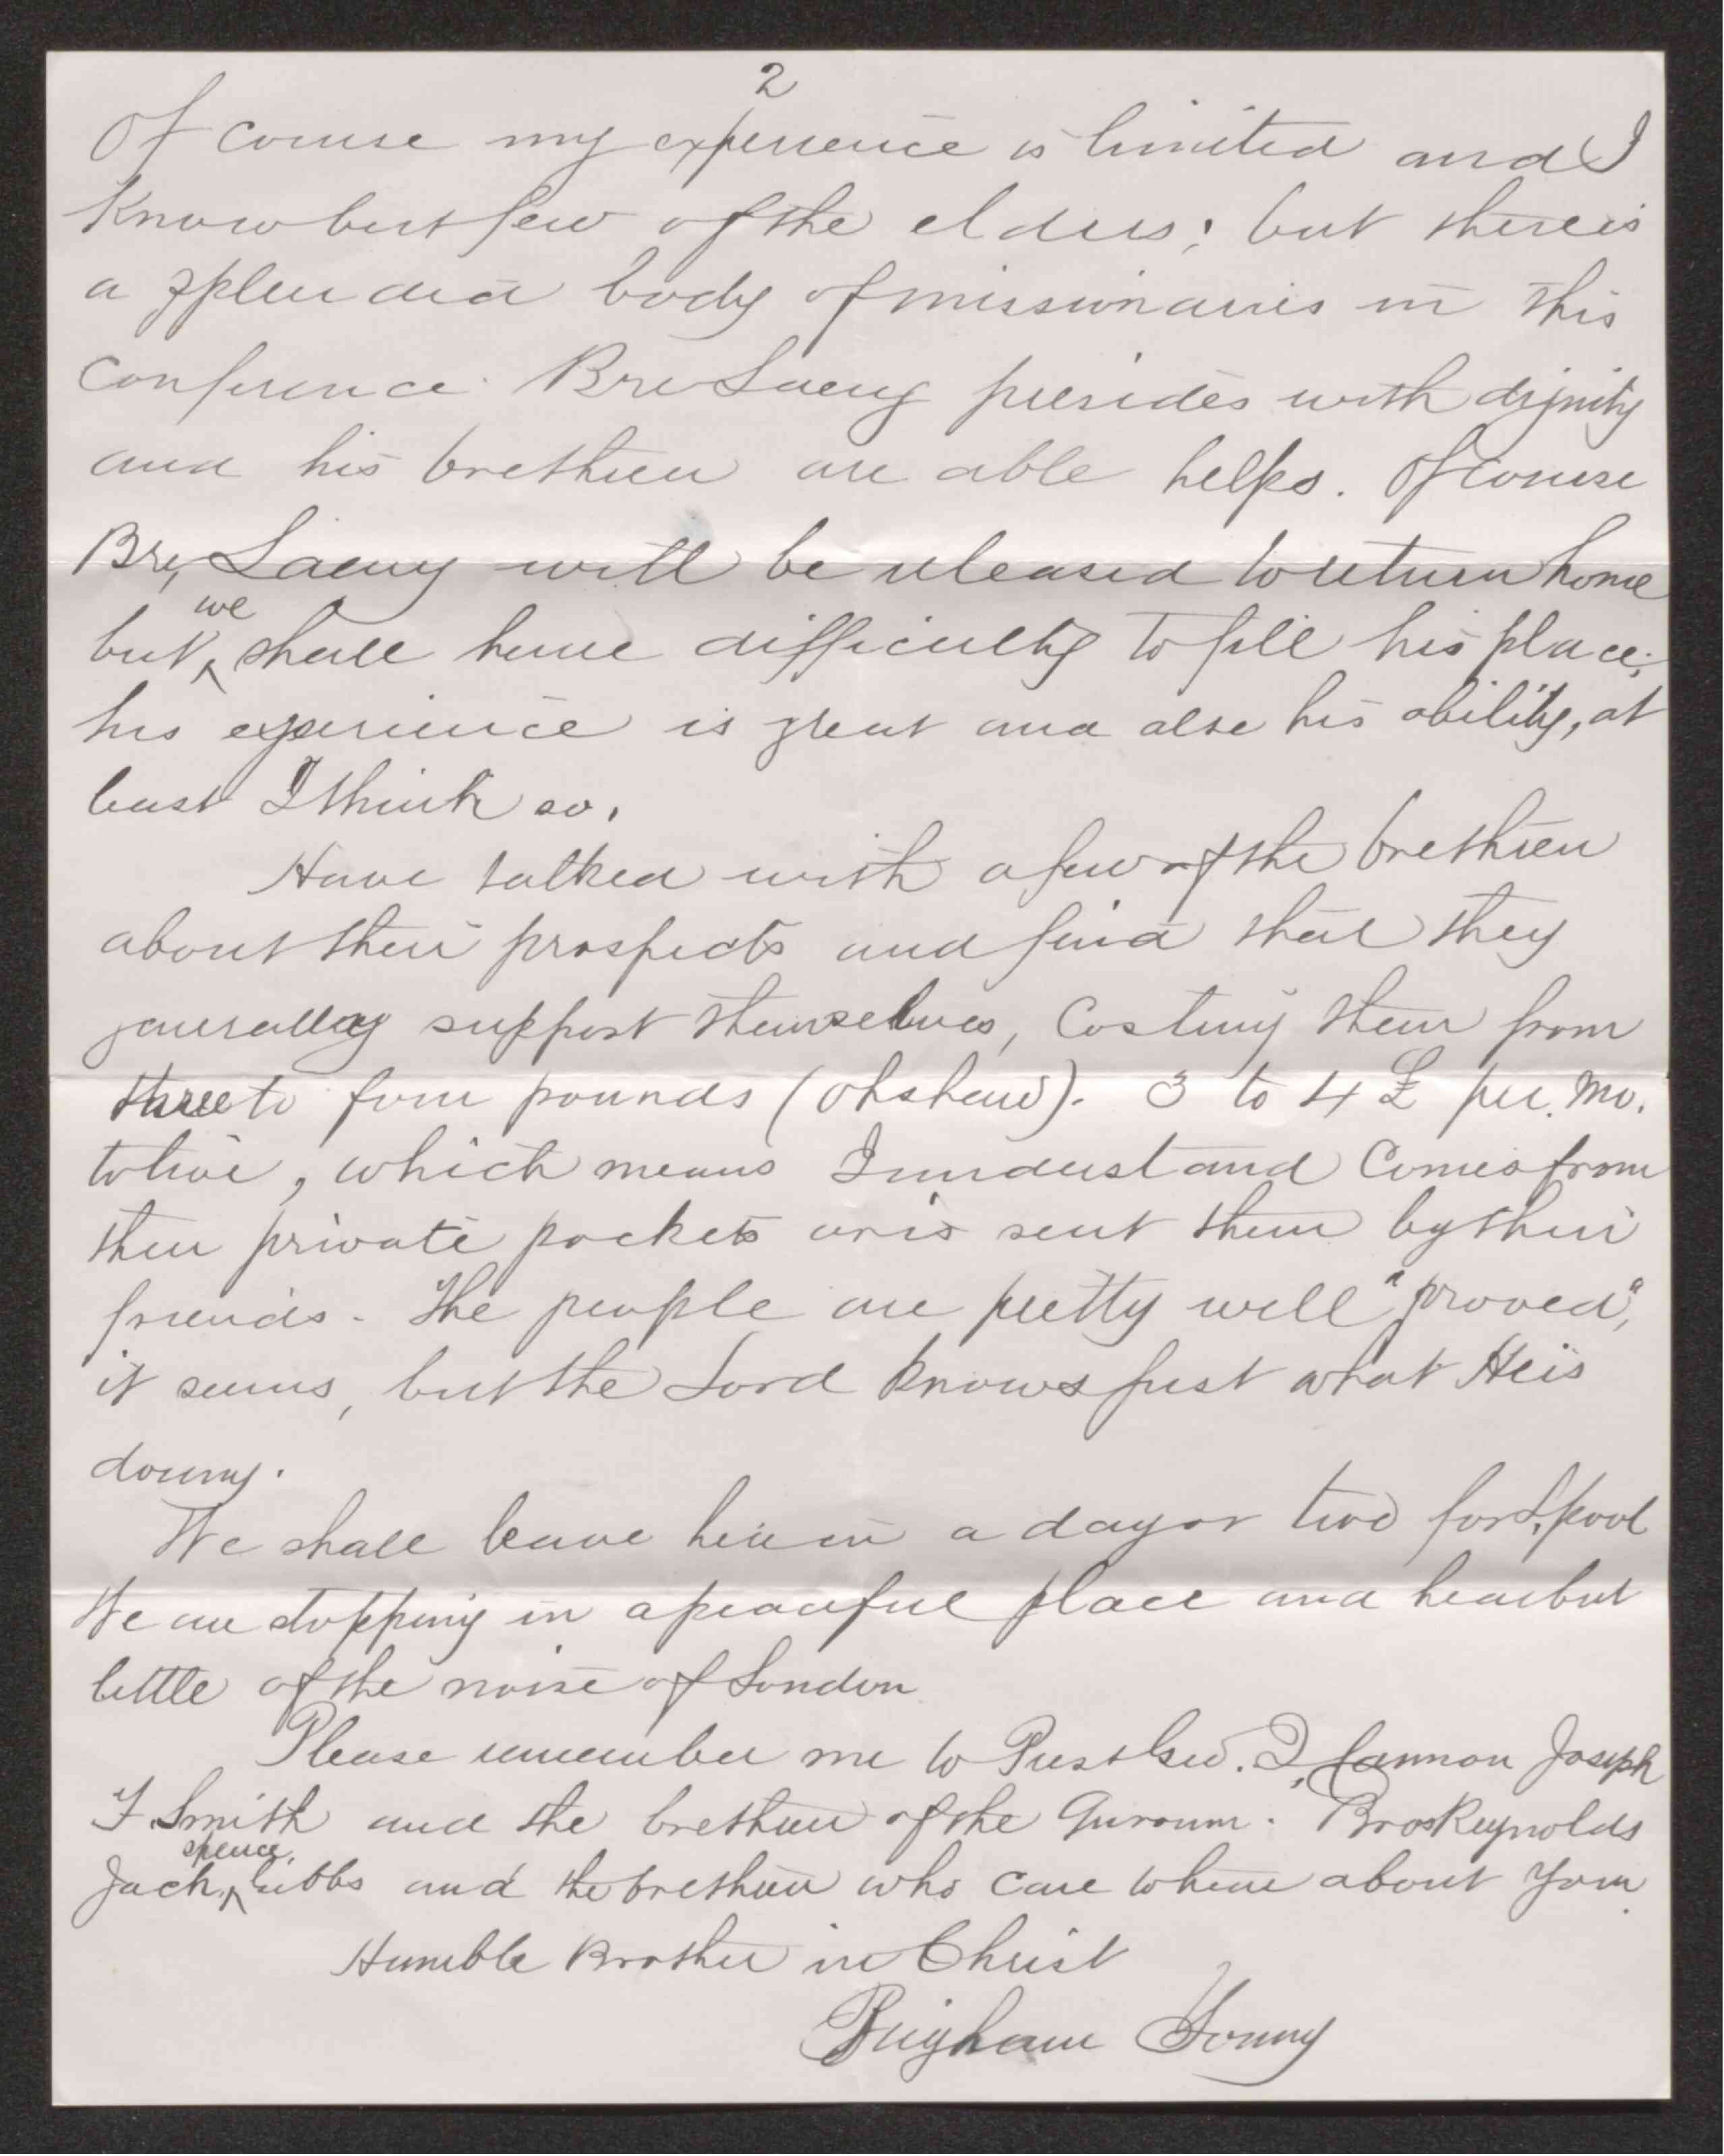 2
Of course my experience is limited and I
know but few of the elders; but there is
a splendid body of missionaries in this
conference. Bro Saeny presides with dignity
and his brethren are able helps. Of course
Bro, will be released to return home
but ^we shall have difficulty to fill his place;
his experience is great and also his ability, at
least I think so.
Have talked with a few of the brethren
about their prospects and find that they
generally support themselves, costing them from
three to four pounds (ohshaw). 3 to 4 £ per. mo.
to live, which means I understand comes from
their private pockets or is sent them by their
friends. The people are pretty well "proved",
it seems, but the Lord knows just what He is
doing.
We shall leave here in a day or two for L,pool
We are stopping in a peaceful place and hear but
little of the noise of London
Please remember me to Prest Geo. Q, Cannon Joseph
F Smith and the brethren of the Quroum. Bros Reynolds
Jack, ^spence, Gibbs and the brethren who care to hear about Your
Humble Brother in Christ
Brigham Young